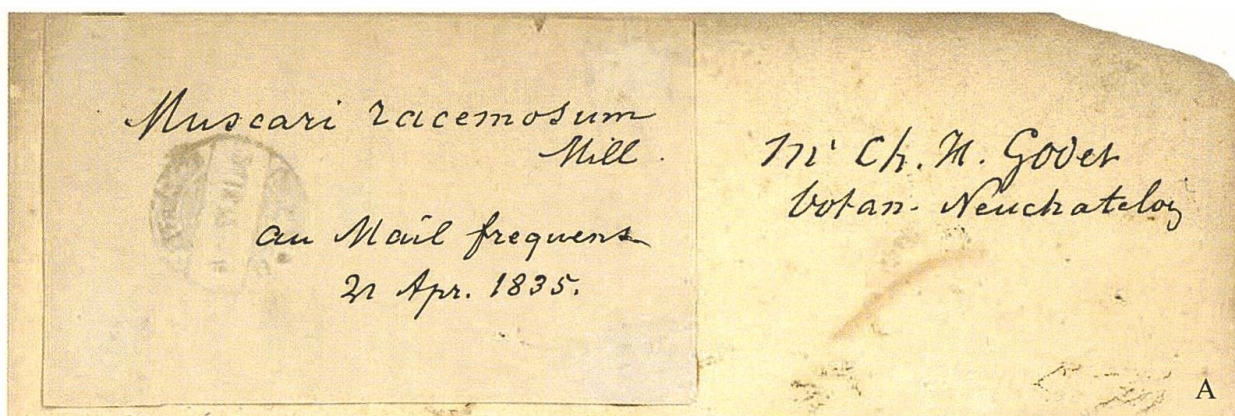 Muscari racemosum
Mill.
au Mail frequens
Apr. 1835.
Mr Ch. H. Godet
botan. Neuchateloy
A